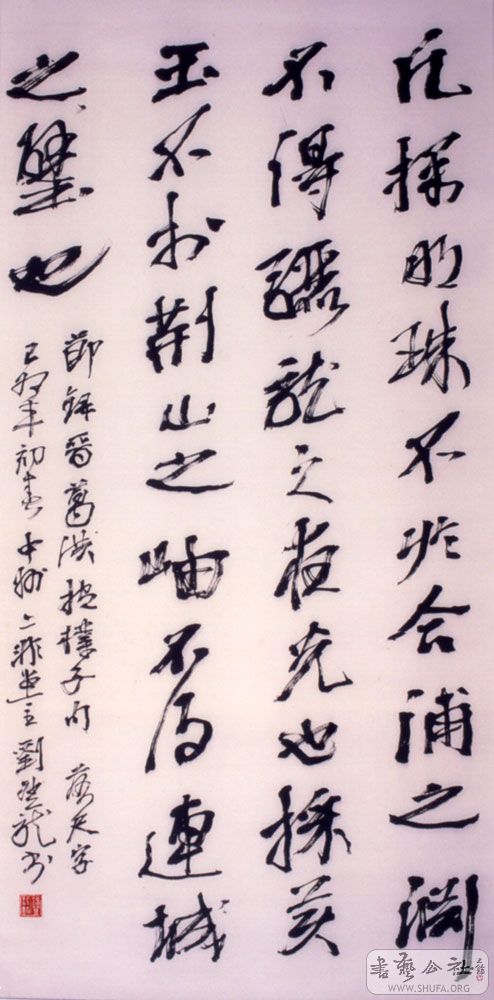 凡探明珠不於合浦之淵
不得驪龍之夜光也採美
玉不於荆山之岫不得連城
之璧也
節録晋葛洪抱樸子句 落尺字
己卯年初春中州二非堂主劉龍書
書藝公社
WWW.SHUFA.ORG